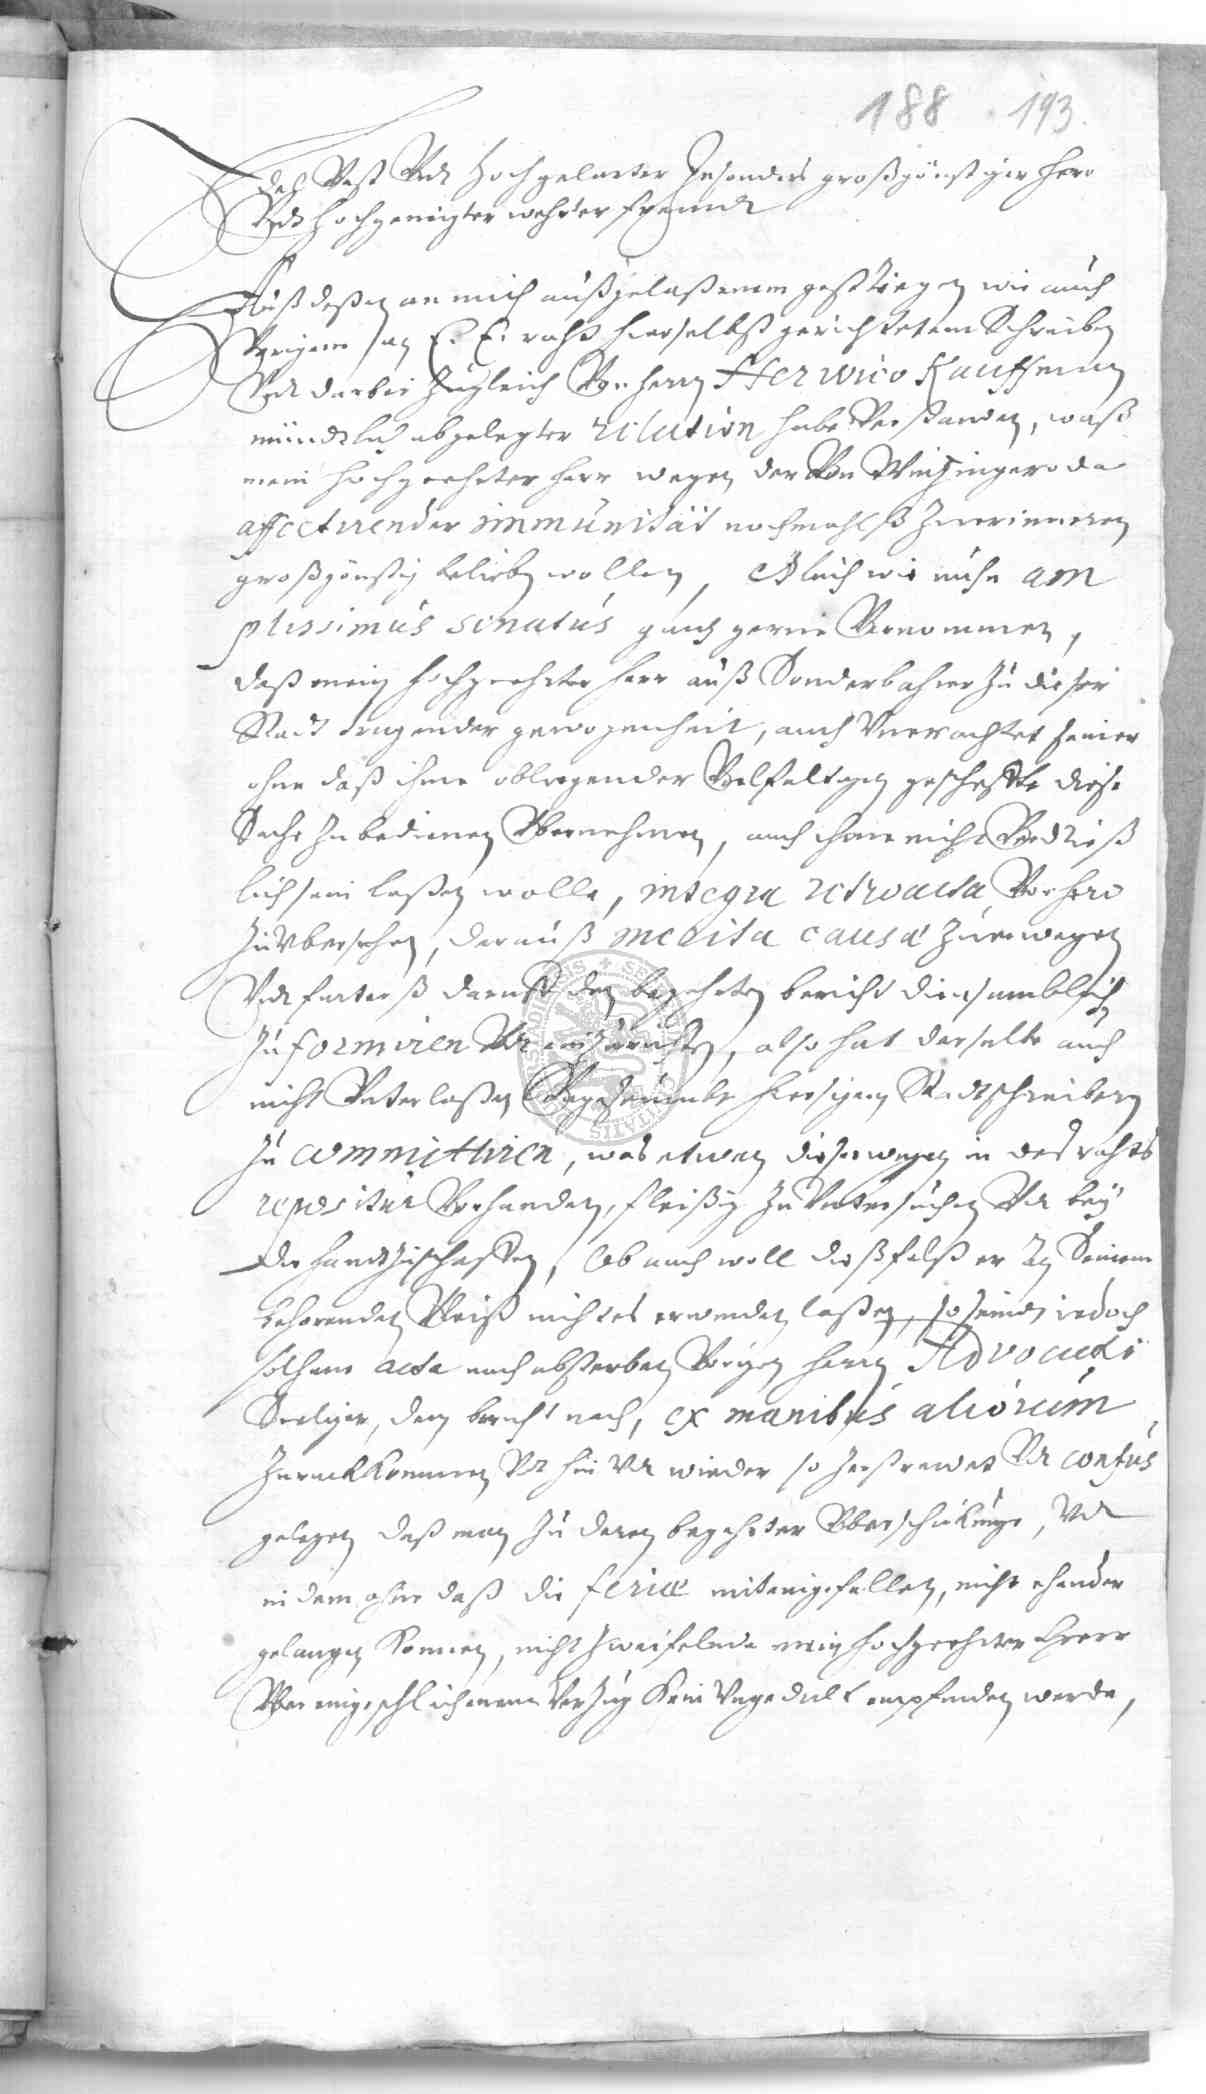 188 193.
Edel Vest Undt Hochgelarter Insonders großgönstiger Herr
Undt Hochgeneigter wehrter freundt
Auß deßen an mich außgelaßenem gestrigen wie auch
Vorigem an E. E. raht hierselbst gerichtetem Schreiben
Undt darbei zugleich Von herrn Herwico Kauffman
mündtlich abgelegter relation habe Verstanden, waß
mein hochgeehrter herr wegen der Von Wintzingeroda
affecturender immunität nochmahlß zuerinneren
großgönstig belieben wollen, Gleich wie nuhn am
plissimus senatus gantz gerne Vernommen,
daß mein hochgeehrter herr auß Sonderbahrer zu dieser
Stadt tragender gewogenheit, auch Unerachtet seiner
ohne daß ihme obliegender Vielfaltigen geschäffte diese
Sache zubedienen Ubernehmen, auch ihme nicht Verdrieß
lich sein laßen wolle, integra retroacta Vorhero
zuUbersehen, darauß merita causæ zuerwegen
Undt ferterß darauff den begehrten bericht diensamblich
zu formiren Undt einzurichten, also hat derselbe auch
nicht Unterlaßen hiesigem Stadtschreibern
zu committiren, was etwan dieserwegen in des rahts
repositur Vorhanden, fleißig zu Untersuchen Undt bey
die handt zuschaffen, Ob auch woll dießfalß er an Seinem
gehorenden Vleiß nichtes erwinden laßen, so seindt iedoch
solche acta nach absterben Vorigen herrn Advocati
Seeliger, dem bericht nach, ex manibus aliorum
zuruckkommen Undt hin Undt wieder so zerstrewet Undt confus
gelegen daß man zu deren begehrter Uberschickunge, Undt
in dem ohne daß die feriæ miteingefallen, nicht ehender
gelangen konnen, nicht zweifelnde mein hochgeehrter Herr
Uber eingeschlichenem Verzug kein Ungedult empfinden werde,